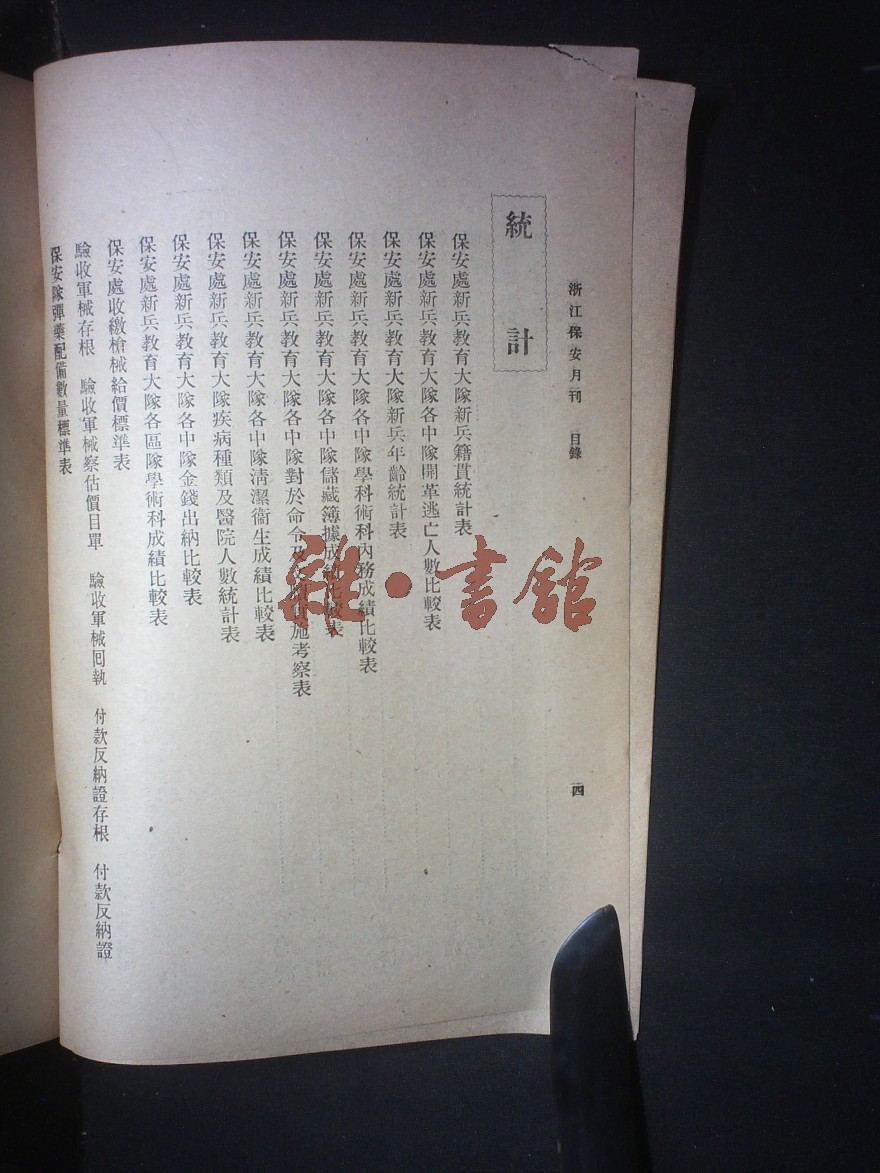 浙江保安月刊 目錄
四
統計
保安處新兵教育大隊新兵籍貫統計表
保安處新兵教育大隊各中隊開革逃亡人數比較表
保安處新兵教育大隊新兵年齡統計表
保安處新兵教育大隊各中隊學科術科內務成績比較表
保安處新兵教育大隊各中隊儲藏簿據成績比較表
保安處新兵教育大隊各中隊對於命令及施考察表
保安處新兵教育大隊各中隊清潔衞生成績比較表
保安處新兵教育大隊疾病種類及醫院人數統計表
保安處新兵教育大隊各中隊金錢出納比較表
保安處新兵教育大隊各區隊學術科成績比較表
保安處收繳槍械給價標準表
驗收軍械存根 驗收軍械察估價目單 驗收軍械囘執 付款反納證存根 付款反納證
保安隊彈藥配備數量標準表
雜·書館